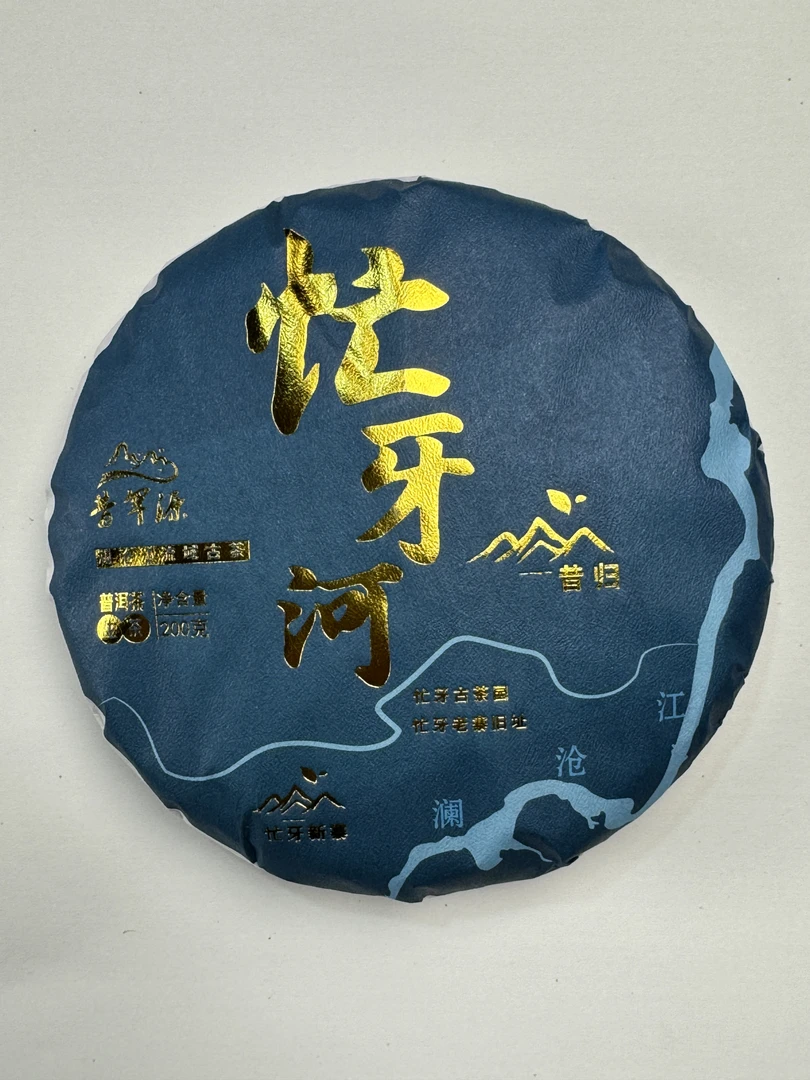 忙牙河
普洱茶
生茶
净含量
200克
昔归
忙牙古茶园
忙牙老寨旧址
忙牙新寨
澜沧江